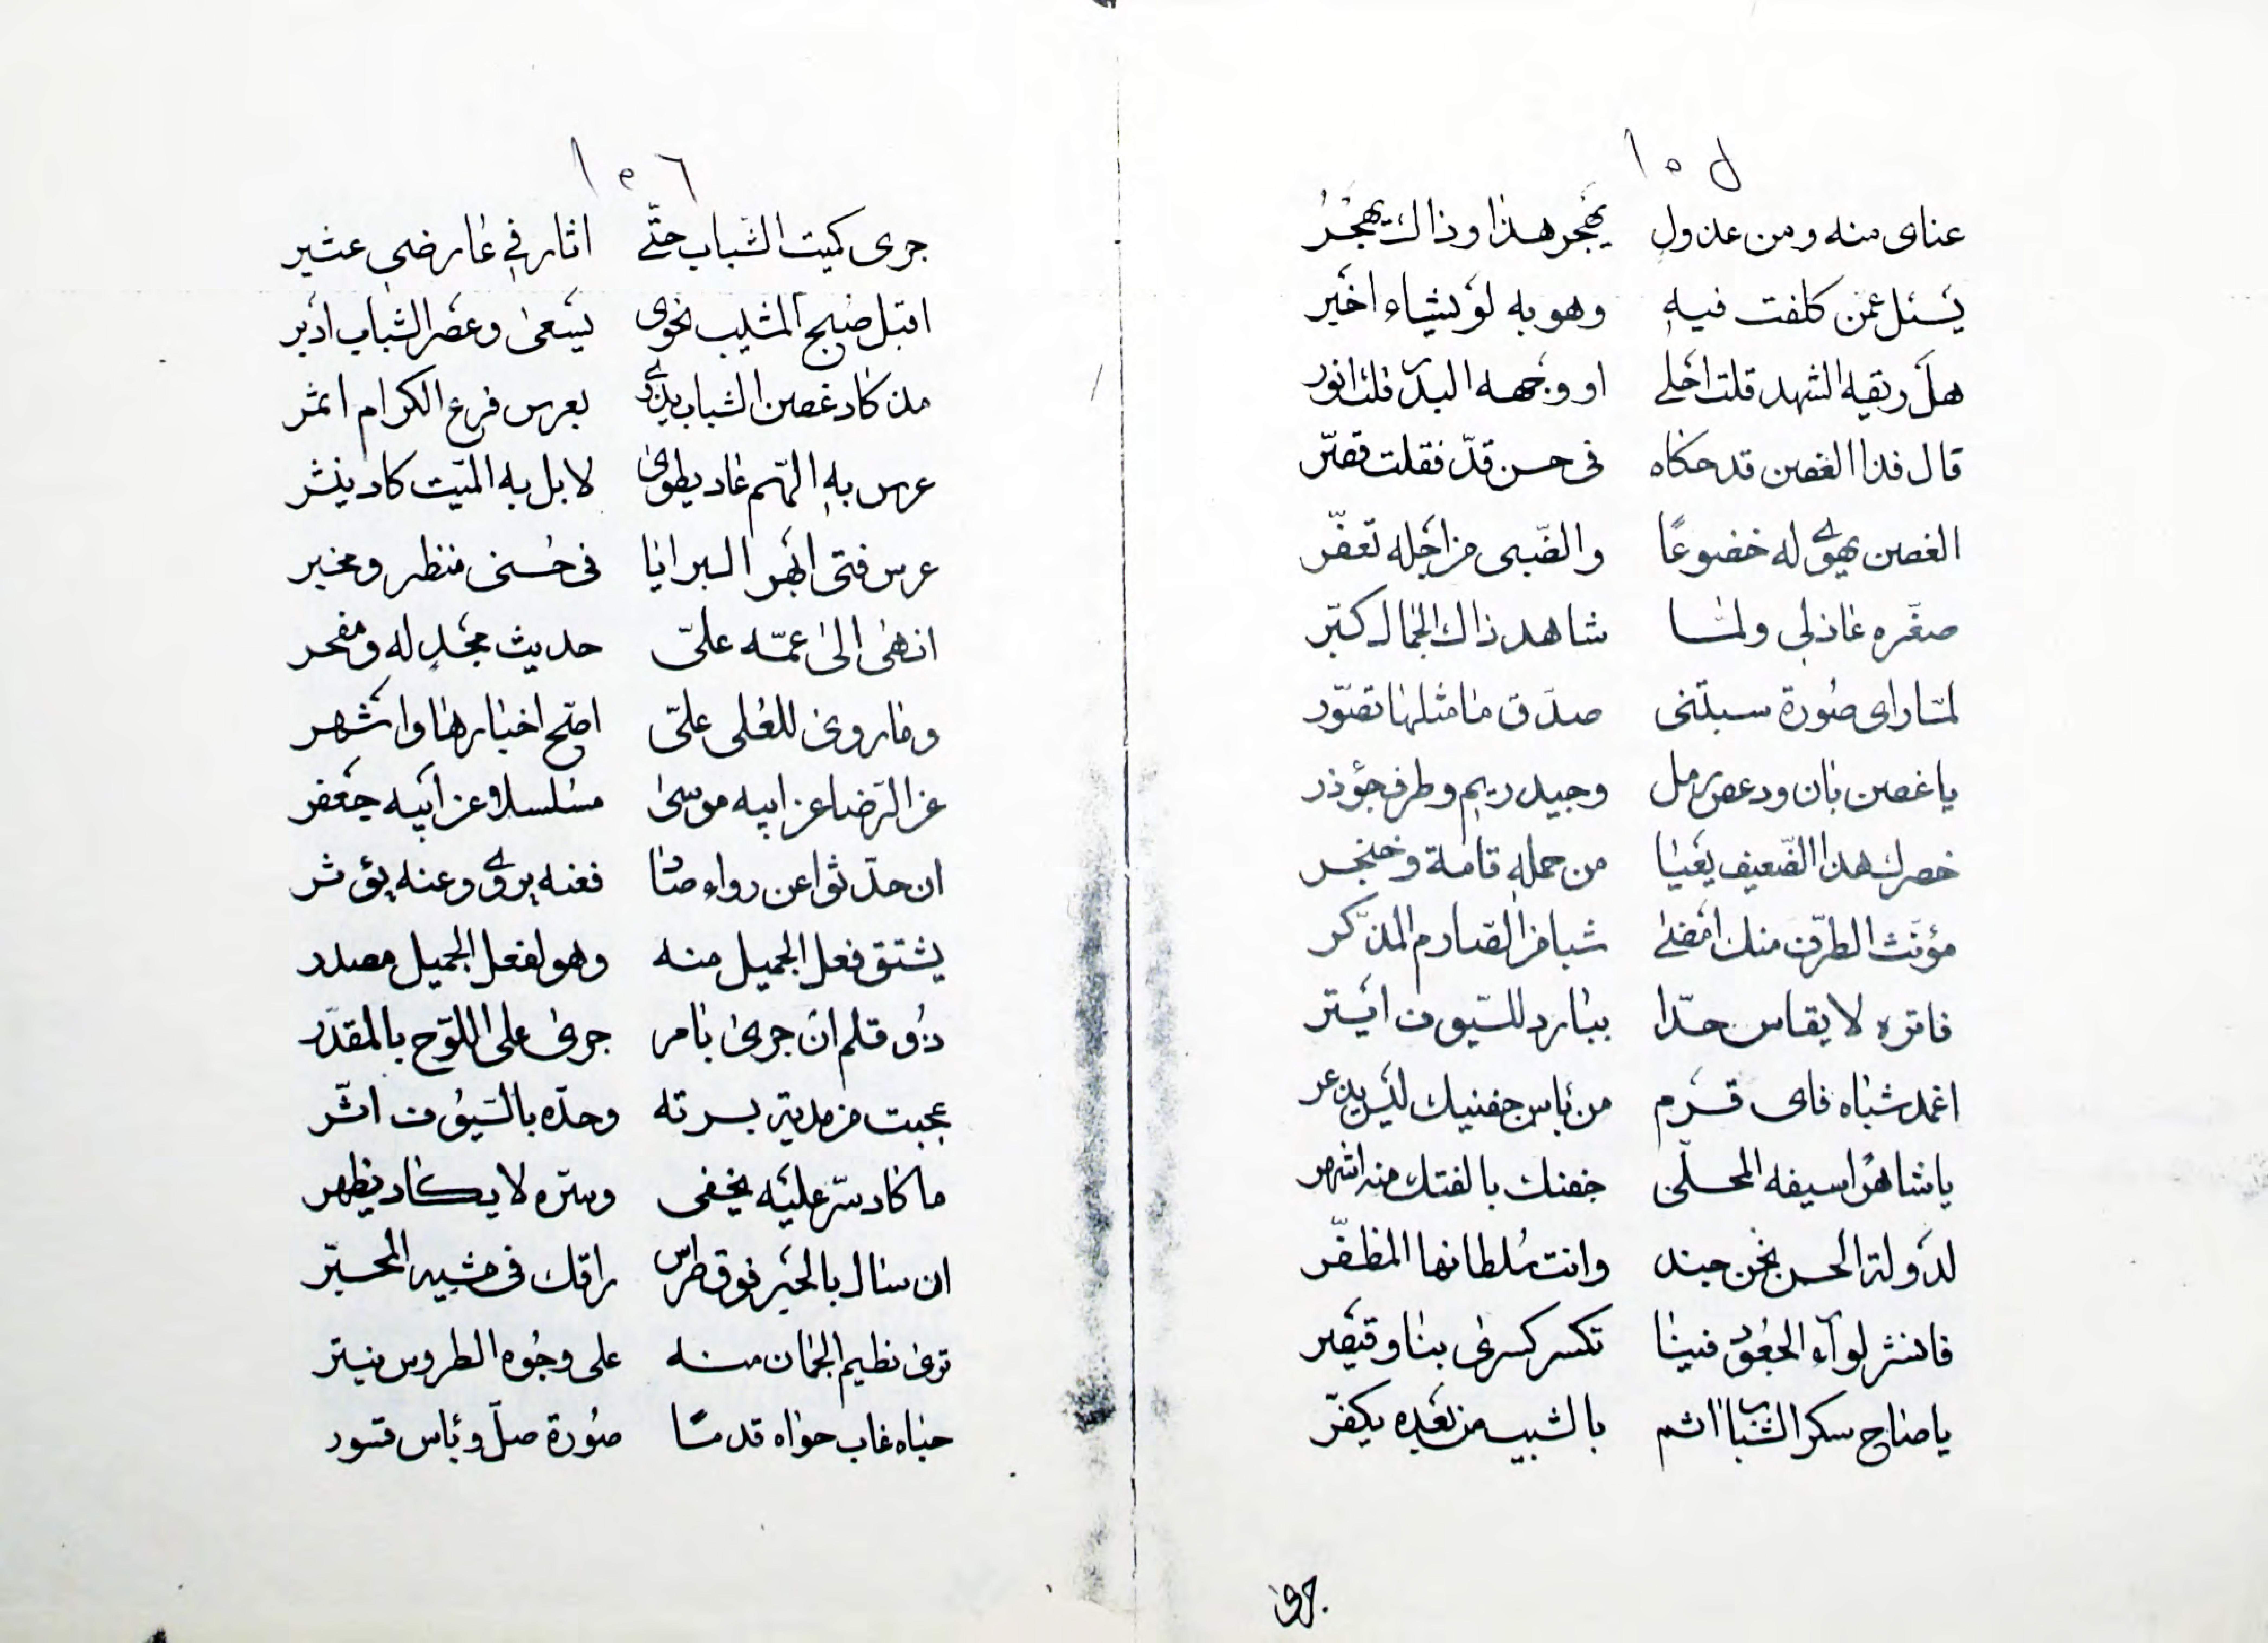 ١٠٥
عنای منه ومن عذول يهجر هذا وذاك يهجر
يسئل عمن كلفت فيه وهو به لو يشاء اخير
هل ريقه الشهد قلت احلى او وجهه البدر قلت انور
قال فذا الغصن قد حكاه فى حسن قد فقلت قصّر
الغصن يهوى له خضوعًا والضّبى من اجله تعفّر
صغّره عاذلى ولمّا شاهد ذاك الجمال كبّر
لمّا رای صورة سبتنى صدق ما مثلها تصوّر
يا غصن بان ودعص رمل وجيد ريم وطرف جؤذر
خصرك هذا الضّعيف يعيا من حمله قامة وخنجر
مؤنث الطرف منك امضى شبا من الصّارم المذكّر
فاتره لا يقاس حدّا ببارد للسّيوف ابتر
اغمد شباه فای قرم من بأس جفنيك ليس يذعر
يا شاهرًا سيفه المحلّى جفنك بالفتك منه اشهر
لدولة الحسن نحن جند وانت سلطانها المظفّر
فانشر لوآء الجعود فينا تكسر كسرى بنا وقيصر
يا صاح سكر الشباب اثم بالشيب من بعده يكفّر
جری
١٠٦
جرى كميت الشّباب حتّى اثار فى عارضى عثير
اقبل صبح المشيب نحوى يسعى وعصر الشباب ادبر
مذ كاد غصن الشباب يذوى بعرس فرع الكرام اثمر
عرس به الهمّ عاد يطوى لا بل به الميّت كاد ينشر
عرس فتى ابهر البرايا فى حسنى منظر ومخبر
انهى الى عمّه علىّ حديث مجد له ومفخر
وما روى للعلى علىّ اصح اخبارها واشهر
عن الرّضا عن ابيه موسى مسلسلا وعن ابيه جعفر
ان حدّثوا عن رواء صادا فعنه يروى وعنه يؤثر
يشتق فعل الجميل منه وهو لفعل الجميل مصدر
ذو قلم ان جرى بامر جرى على اللّوح بالمقدّر
عجبت من مدية برته وحدّه بالسّيوف اثّر
ما كاد سرّ عليه يخفى وسرّه لا يكاد يظهر
ان سال بالحبر فوق طرس راقك فى مشيه المحبّر
ترى نظيم الجمان منه على وجوه الطروس ينثر
حباه غاب حواه قدمًا صورة صلّ وبأس قسور